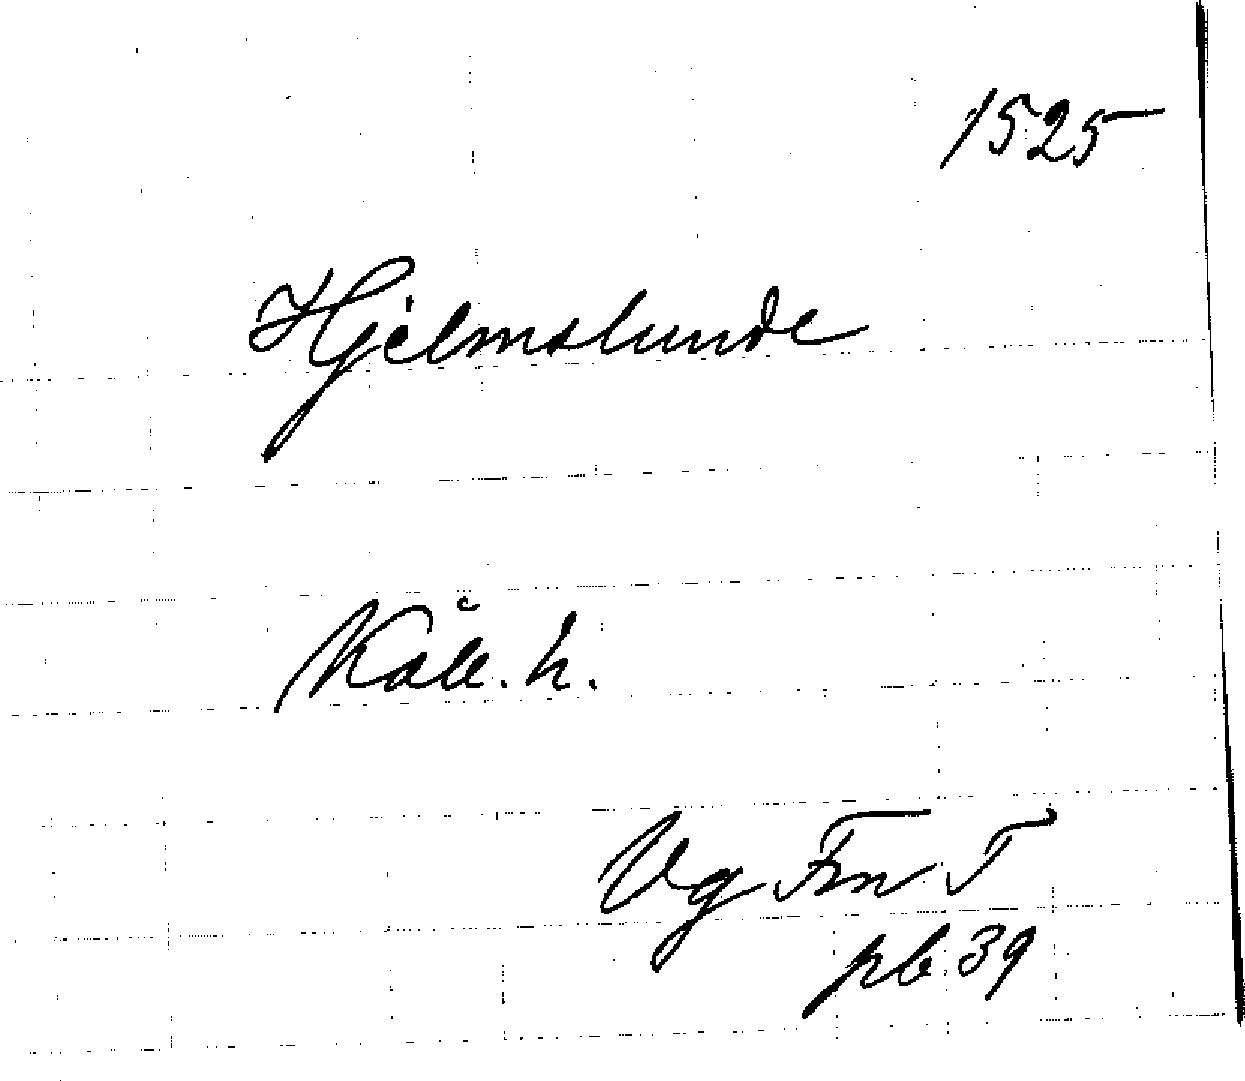 1525
Hjelmslunde
Kåll. h.
Vg Frn T
pb 39